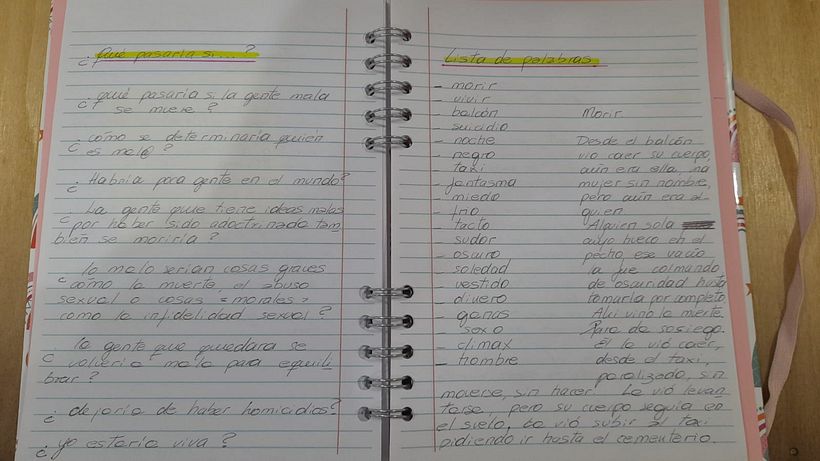 ¿Qué pasaría si...?
¿qué pasaría si la gente mala
se muere?
¿cómo se determinaría quien
es mal@?
¿Habría poca gente en el mundo?
¿La gente que tiene ideas malas
por haber sido adoctrinado tam
bién se moriría?
¿lo malo serían cosas graves
como la muerte, el abuso
sexual o cosas «morales»
como la infidelidad sexual?
¿la gente que quedara se
volvería mala para equili
brar?
¿dejaría de haber homicidios?
¿yo estaría viva?
Lista de palabras
- morir
- vivir
- balcón
- suicidio
- noche
- negro
- taxi
- fantasma
- miedo
- frío
- tacto
- sudor
- oscuro
- soledad
- vestido
- dinero
- ganas
- sexo
- climax
- hombre
Morir.
Desde el balcón
vio caer su cuerpo,
aún era ella, na
mujer sin nombre,
pero aún era al-
guien.
Alguien sola
cuyo hueco en el
pecho, ese vacío
la fue colmando
de oscuridad hasta
tomarla por completo.
Ahí vino la muerte.
Para da sosiego.
Él la vió caer,
desde el taxi,
paralizado, sin
moverse, sin hacer. La vió levan
tarse, pero su cuerpo seguía en
el suelo, la vió subir al taxi
pidiendo ir hasta el cementerio.